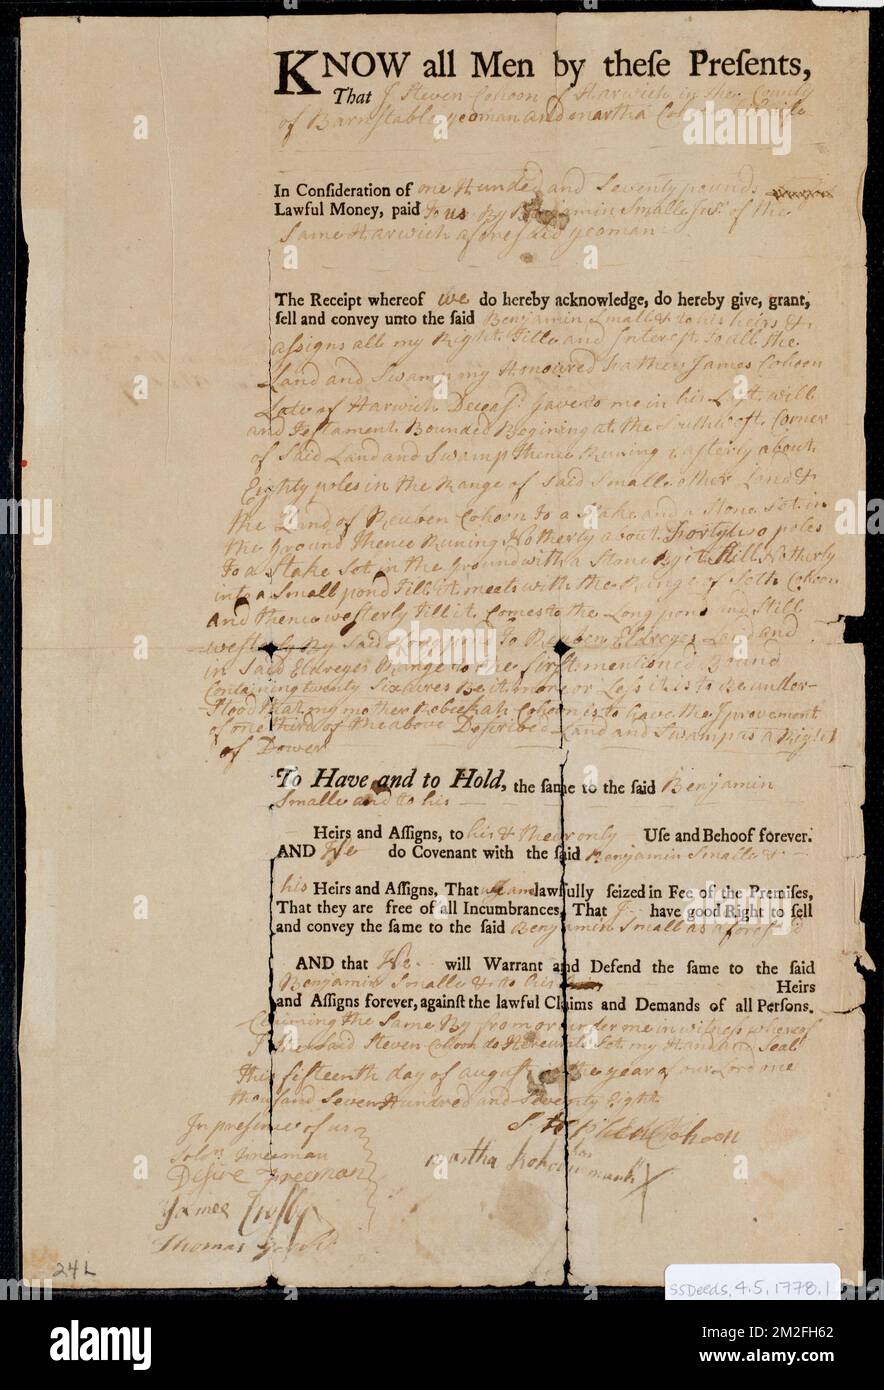 KNOW all Men by theſe Preſents,
That I Steven Cohoon of Harwich in the County
of Barnstable yeoman and martha
In Conſideration of one Hundred and Seventy pounds
Lawful Money, paid to us By Benjamin Smalle Junr. of the
Same Harwich aforesaid yeoman
The Receipt whereof we do hereby acknowledge, do hereby give, grant,
ſell and convey unto the ſaid Benjamin Small & to his heirs &
assigns all my Right Title and Interest to all the
Land and Swamp my Honoured Father James Cohoon
Late of Harwich Deceasd. Gave to me in his Last will
and Testament Bounded Begining at the Southwest Corner
of Said Land and Swamp Thence Runing Easterly about
Eighty poles in the Range of Said Smalls other Land &
the Land of Reuben Cohoon to a Stake and a Stone Set in
the Ground thence Runing Notherly about Forty two poles
to a Stake Set in the Ground with a Stone By it Still Notherly
into a Small pond Till it meets with the Range of Seth Cohoon
And thence westerly Till it Comes to the Long pond and Still
westerly By Said Long pond To Reuben Eldreges Land and
in Said Eldreges Range to the first mentioned Bound
Containing twenty Six acres Be it more or Less it is to Be under-
stood that my mother Rebeckah Cohoon is to have the Improvement
of one third of the above Descrived Land and Swamp as a Right
of Dower
To Have and to Hold, the ſame to the ſaid Benjamin
Smalle and to his
Heirs and Aſſigns, to his & their only Uſe and Behoof forever.
AND We do Covenant with the ſaid Benjamin Smalle &
his Heirs and Aſſigns, That I am lawfully ſeized in Fee of the Premiſes,
That they are free of all Incumbrances, That I have good Right to ſell
and convey the ſame to the ſaid Benjamin Small as aforesd
AND that We will Warrant and Defend the ſame to the ſaid
Benjamin Smalle & to his Heirs
and Aſſigns forever, againſt the lawful Claims and Demands of all Perſons.
Claiming the Same By from or under me in witness whereof
I the said Steven Cohoon do Hereunto Set my Hand and Seal
this fifteenth day of august in the year of our Lord one
thousand Seven Hundred and Seventy Eight
In presence of us
Stephen Cohoon
Solon. Freeman
Martha Cohoon mark X
Desire Freeman
James Crosby
Thomas
24L
SSDeeds.4.5.1778.1
alamy
a
alamy
Image ID: 2M2FH62
www.alamy.com